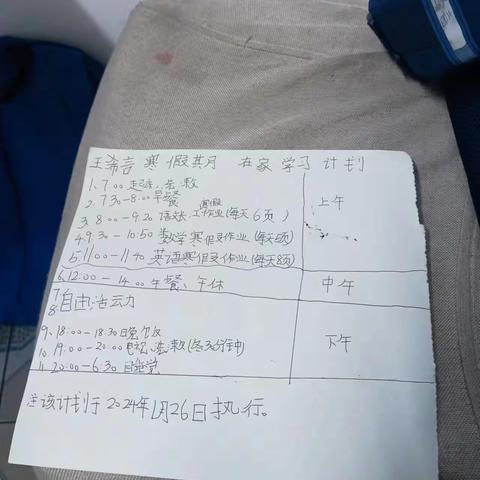 王希言 寒 假其月 在家 学习 计划
1、7:00 起床、洗漱
2、7:30-8:00 早餐
3、8:00-9:20 语文 寒假 工作业(每天6页)
上午
4、9:30-10:50 数学寒假作业(每天5页)
5、11:00-11:40 英语寒假作业(每天8页)
6、12:00-14:00 午餐、午休
中午
7、
8、自由活云力
9、18:00-18:30 晚饭
下午
10、19:00-20:00 电视、洗漱(各30分钟)
11、20:00-6:30 睡觉
注:该计划于2024年1月26日执行。